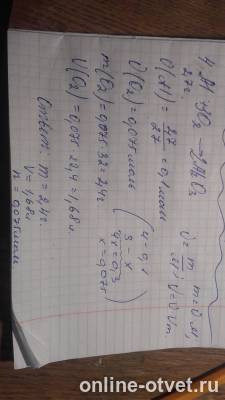 4Al + 3O₂ → 2Al₂O₃
2,7г.
ν(Al) = 2,7/27 = 0,1 моль
ν = m/M m = ν·M,
V = ν·Vm.
4 - 0,1
3 - x
4x = 0,3
x = 0,075
ν(O₂) = 0,075 моль
m(O₂) = 0,075·32 = 2,4г
V(O₂) = 0,075·22,4 = 1,68 л
Ответ: m = 2,4г.
V = 1,68л
n = 0,075моль
online-otvet.ru